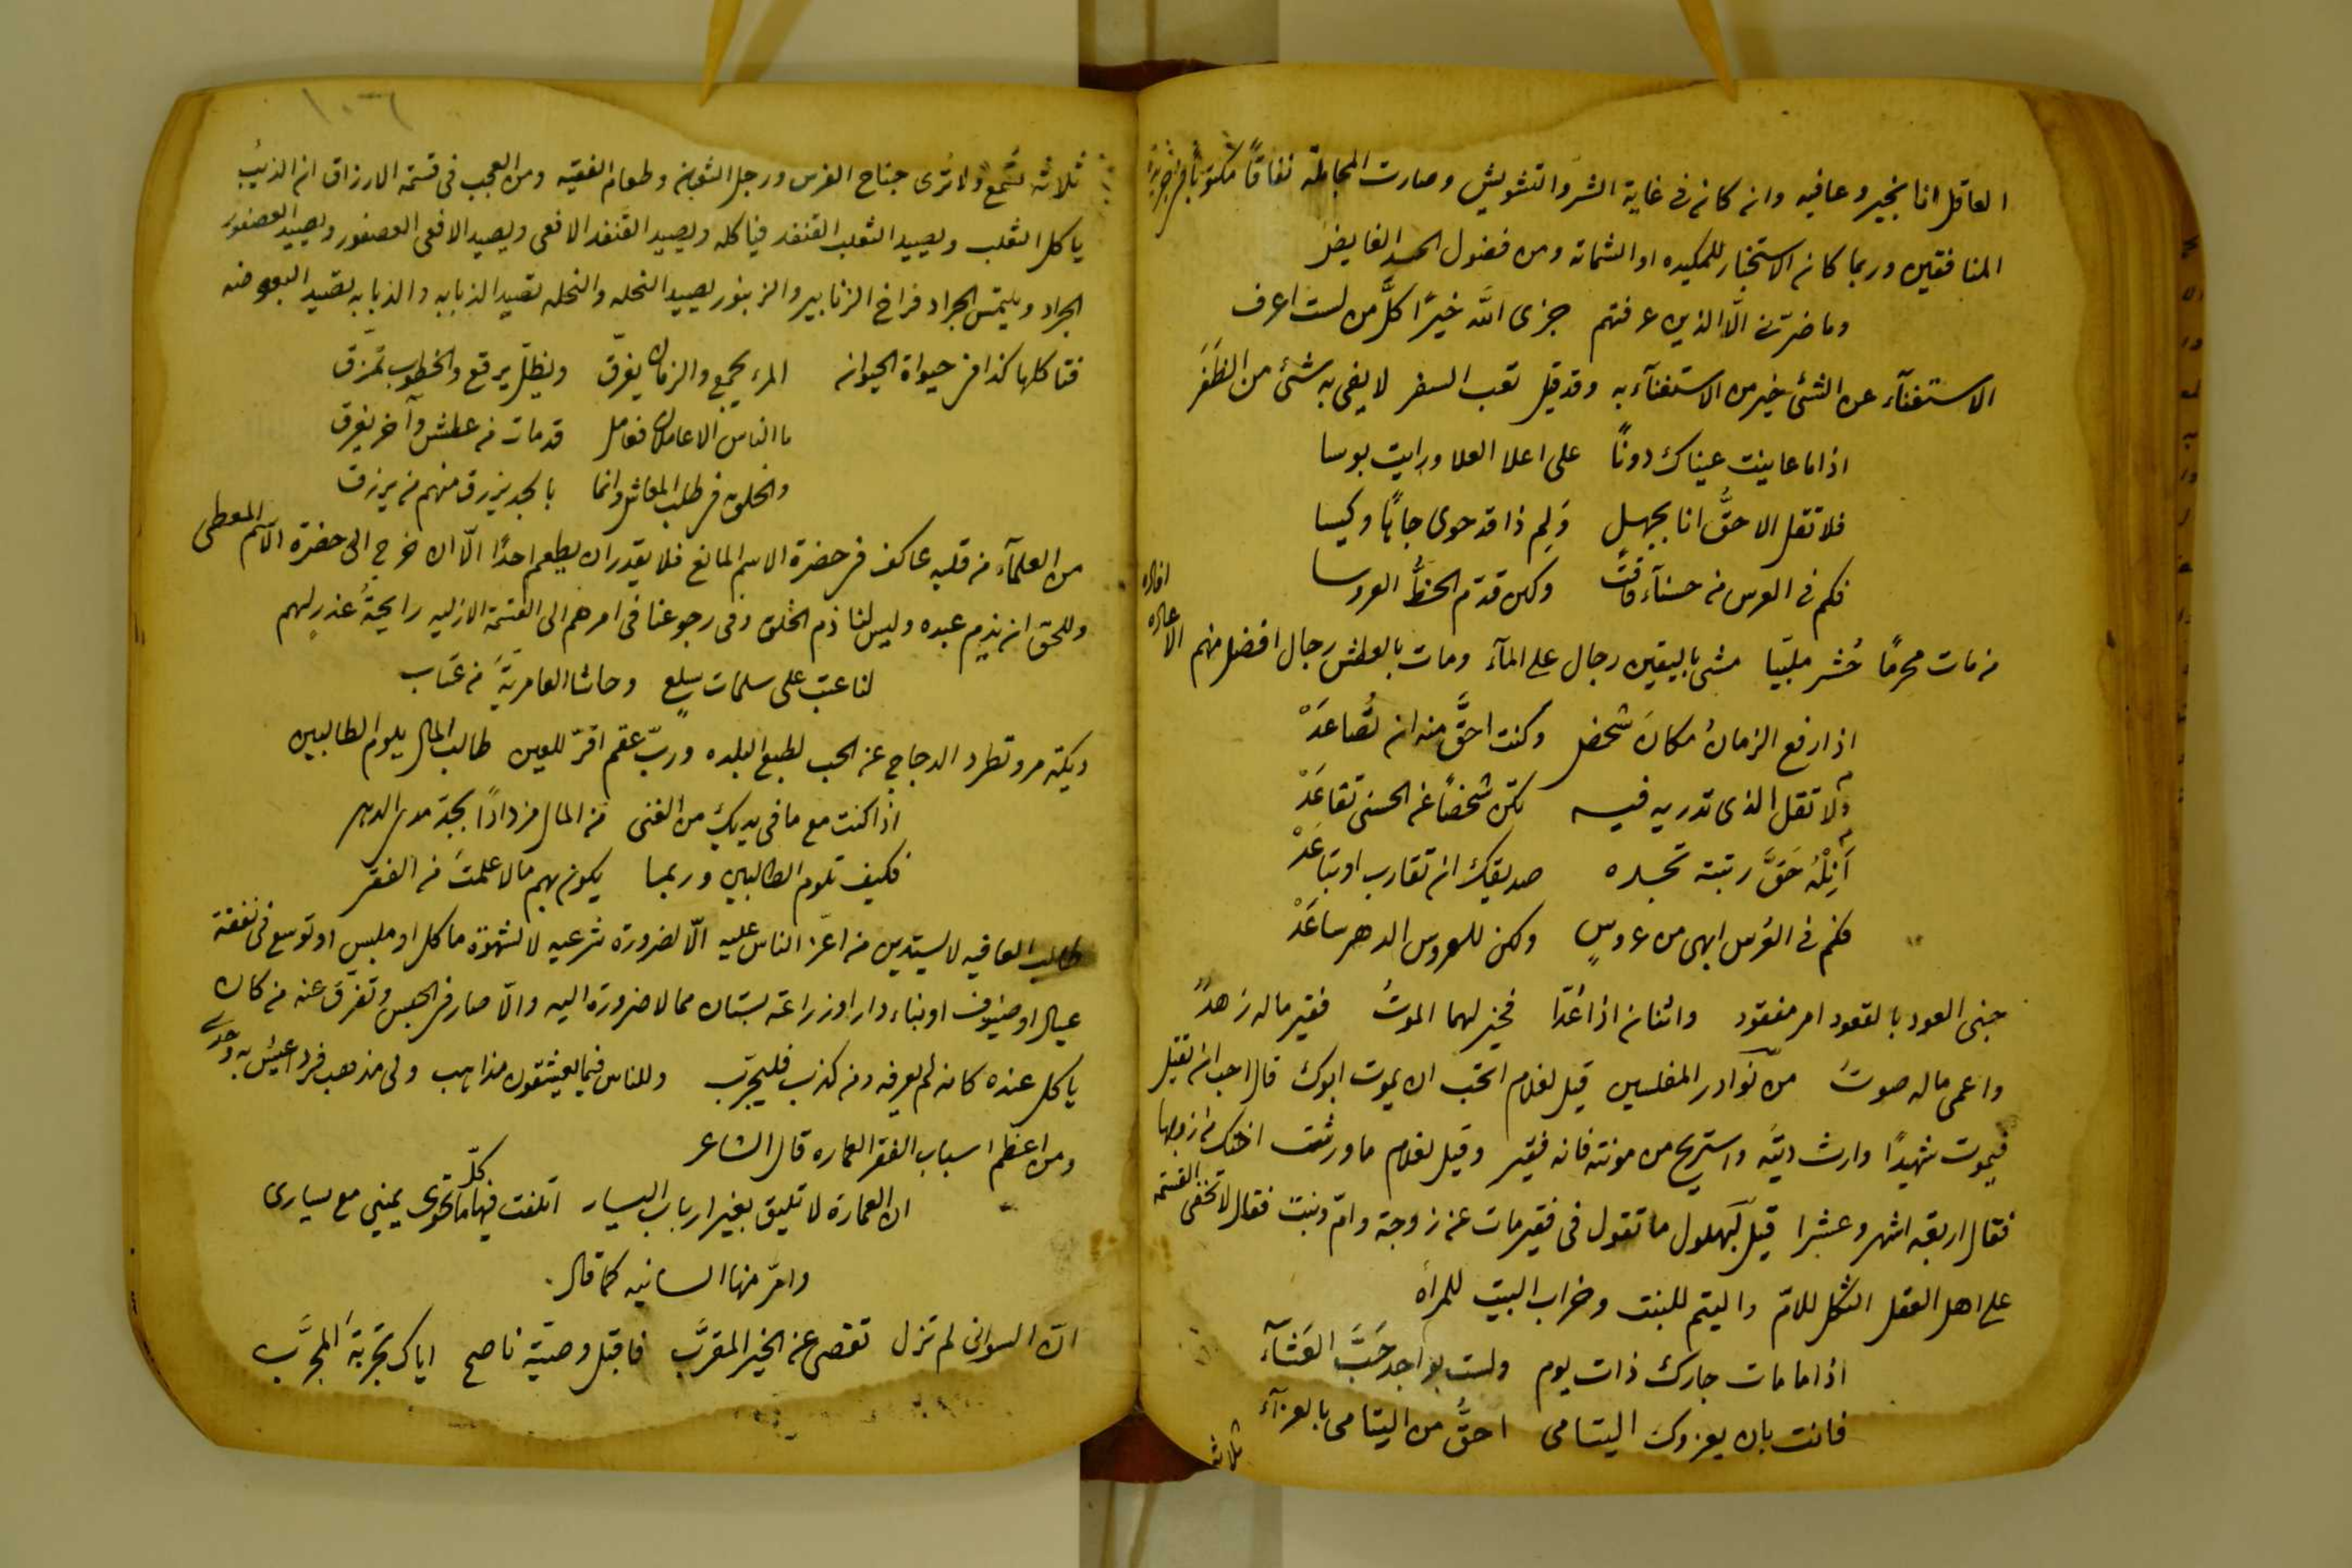 العاقل انا بخير وعافيه وان كان فى غاية الشر والتشويش وصارت المجاملة نفاقًا مكتوبًا فى جريدة
المنافقين وربما كان الاستخبار للمكيده او الشماتة ومن فضول الحسد الفايض
وما ضرنى الّا الذين عرفتهم جزى الله خيرًا كلَّ من لست اعرف
الاستغنآء عن الشئ خير من الاستغنآء به وقد قيل تعب السفر لا يفى به شئ من الظَفَر
اذا ما عاينت عيناك دونًا على اعلا العلا ورايت بوسا
فلا تقل الاحقُّ انا بجهل وَلِم ذا قد حوى جاهًا وكيسا
فكم فى العرس من حسنآء فاقت ولكن قدّم الحظُّ العروسا
من مات محرمًا حُشر ملبّيا مشى باليقين رجال على المآء ومات بالعطش رجال افضل منهم
اذا رفع الزمانُ مكانَ شخص وكنت احقَّ منه ان تُصاعَدْ
ولا تقل الذى تدريه فيه تكن شخصًا عن الحسنى تقاعَدْ
اَنِلْهُ حَقَّ رتبته تجده صديقك ان تقارب او تباعَدْ
فكم فى العُرس ابهى من عروسٍ ولكن للعروس الدهر ساعَدْ
جنى العود بالقعود امر مفقود واثنان اذا عُدّا فخير لهما الموتُ فقير ماله زهدٌ
واعمى ماله صوتٌ من نوادر المفلسين قيل لغلام اتحب ان يموت ابوك قال احب ان يقتل
فيموت شهيدًا وارث ديته واستريح من مونته فانه فقير وقيل لغلام ما ورثت اختك من زوجها
فقال اربعة اشهر وعشرا قيل لبهلول ما تقول فى فقير مات عن زوجة وامّ وبنت فقال لا تخفى القسمة
على اهل العقل الثكل للامّ واليتم للبنت وخراب البيت للمراه
اذا ما مات جارك ذات يوم ولست بواجد حَبَّ العَشآء
فانت بان يعزوك اليتامى احقُّ من اليتامى بالعزآء
ثلاثة
ثلاثة تُسمع ولا تُرى جناح الفرس ورجل الثعبان وطعام الفقيه ومن العجب فى قسمة الارزاق ان الذيبُ
ياكل الثعلب ويصيد الثعلب القنفد فياكله ويصيد القنفد الافعى ويصيد الافعى العصفور ويصيد العصفور
الجراد ويلتمس الجراد فراخ الزنابير والزنبور يصيد النحله والنحله تصيد الذبابه والذبابه تصيد البعوضه
فتاكلها كذا فى حيواة الحيوان المرء يجمع والزمان يفرّق ويظلّ يرقع والخطوب تمزّق
ما الناس الا عاملان فعامل قد مات من عطش وآخر يغرق
والخلق فى طلب المعاش وانما بالجد يرزق منهم من يرزق
من العلمآء من قلبه عاكف فى حضرة الاسم المانع فلا يقدر ان يطعم احدًا الّا ان خرج الى حضرة الاسم المعطى
وللحق ان يذم عبده وليس لنا ذم الخلق وفى رجوعنا فى امرهم الى القسمة الازليه رايحةُ عذرٍ لهم
لنا عتب على سلمات سلع وحاشا العامريّةَ من عتاب
ديكة مرو تطرد الدجاج عن الحب لطبع البلده وربّ عقم اقرّ للعين طالب المال يلوم الطالبين
اذا كنت مع ما فى يديك من الغنى من المال مزدادًا بجدّ مدى الدهر
فكيف تلوم الطالبين وربما يكون بهم ما لا علمتَ من الفقر
طالب العافيه لا يستدين من اعز الناس عليه الّا لضرورة شرعيه لا لشهوة ماكل او ملبس او توسع فى نفقة
عيال او ضيوف او بناء دار او زراعة بستان مما لا ضرورة اليه والّا صار فى الحبس وتفرّق عنه من كان
ياكل عنده كان لم يعرفه ومن كذب فليجرّب وللناس فيما يعشقون مذاهب ولى مذهب فرد اعيش به وحدى
ومن اعظم اسباب الفقر العماره قال الشاعر
ان العمارة لا تليق بغير ارباب اليسار اتلفت فيها كلّ ما تحوى يمينى مع يسارى
وامرّ منها السانيه كما قال
انّ السوانى لم تزل تقصى عن الخير المقرَّب فاقبل وصيّة ناصح اياك تجربةَ المجرَّب